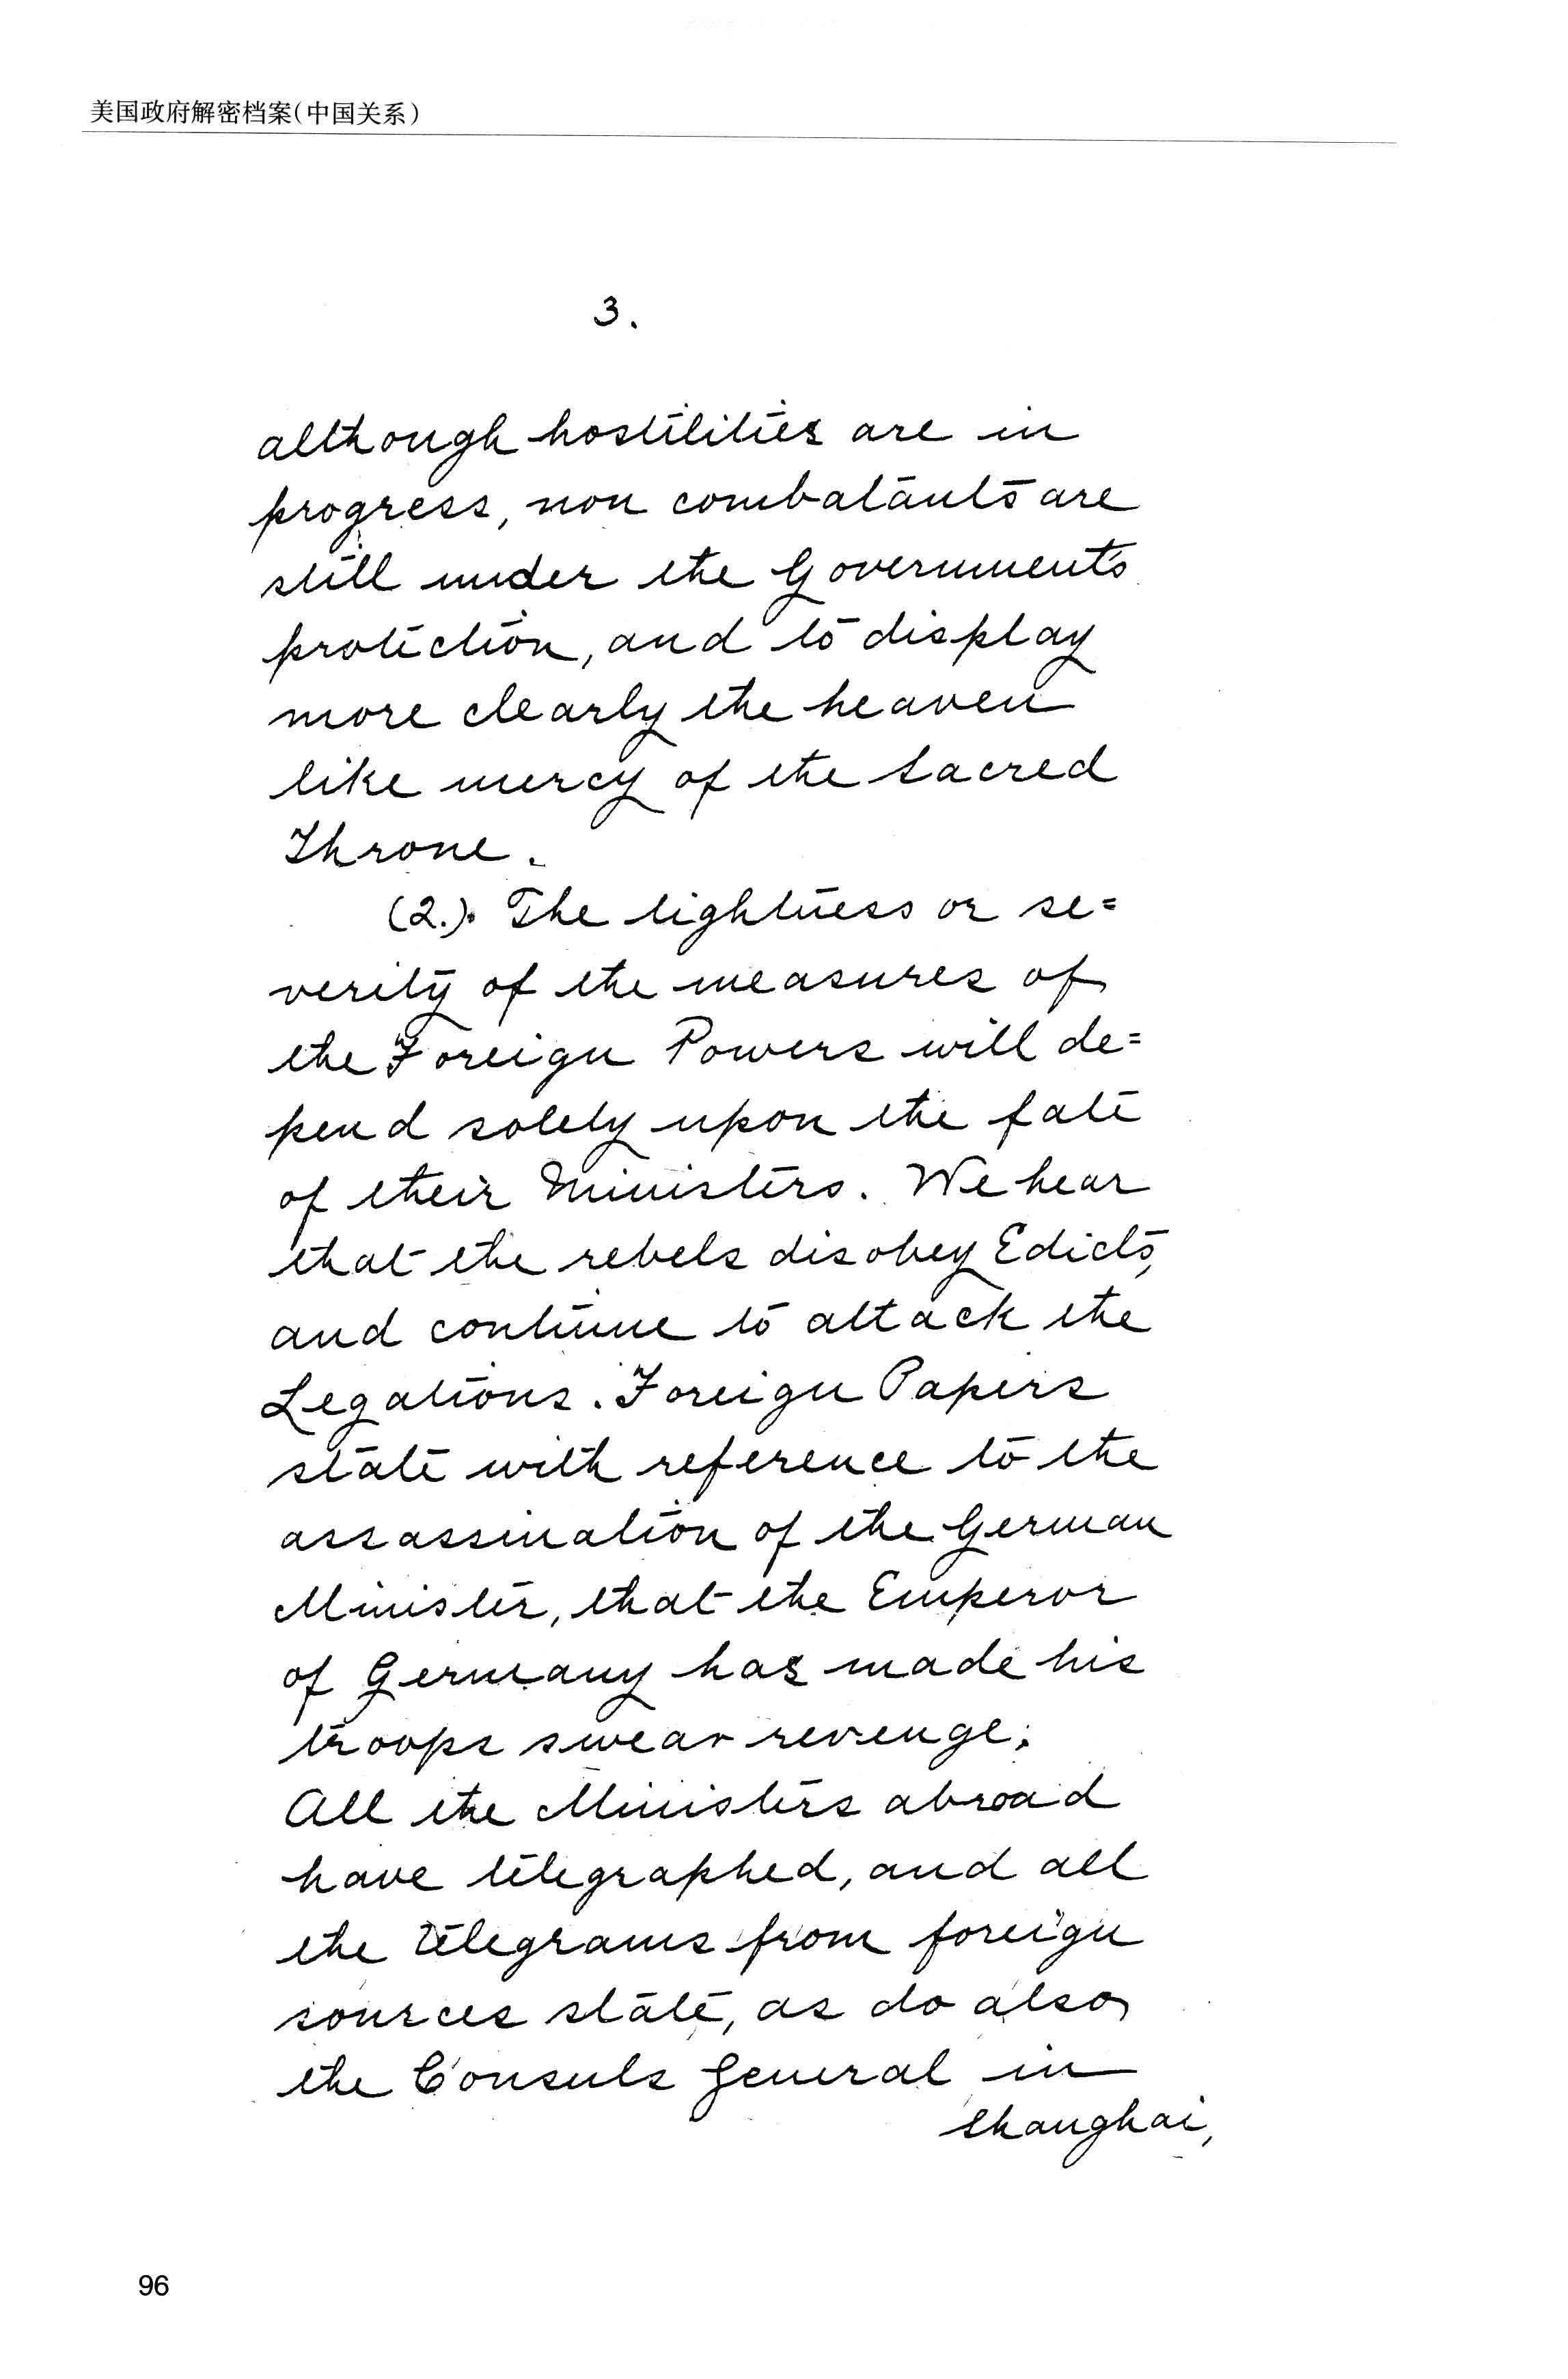 美国政府解密档案(中国关系)
3.
although hostilities are in
progress, non combatants are
still under the Government's
protection, and to display
more clearly the heaven
like mercy of the Sacred
Throne.
(2.). The lightness or se=
verity of the measures of
the Foreign Powers will de=
pend solely upon the fate
of their Ministers. We hear
that the rebels disobey Edicts,
and continue to attack the
Legations. Foreign Papers
state with reference to the
assassination of the German
Minister, that the Emperor
of Germany has made his
troops swear revenge.
All the Ministers abroad
have telegraphed, and all
the telegrams from foreign
sources state, as do also
the Consuls General in
Shanghai,
96